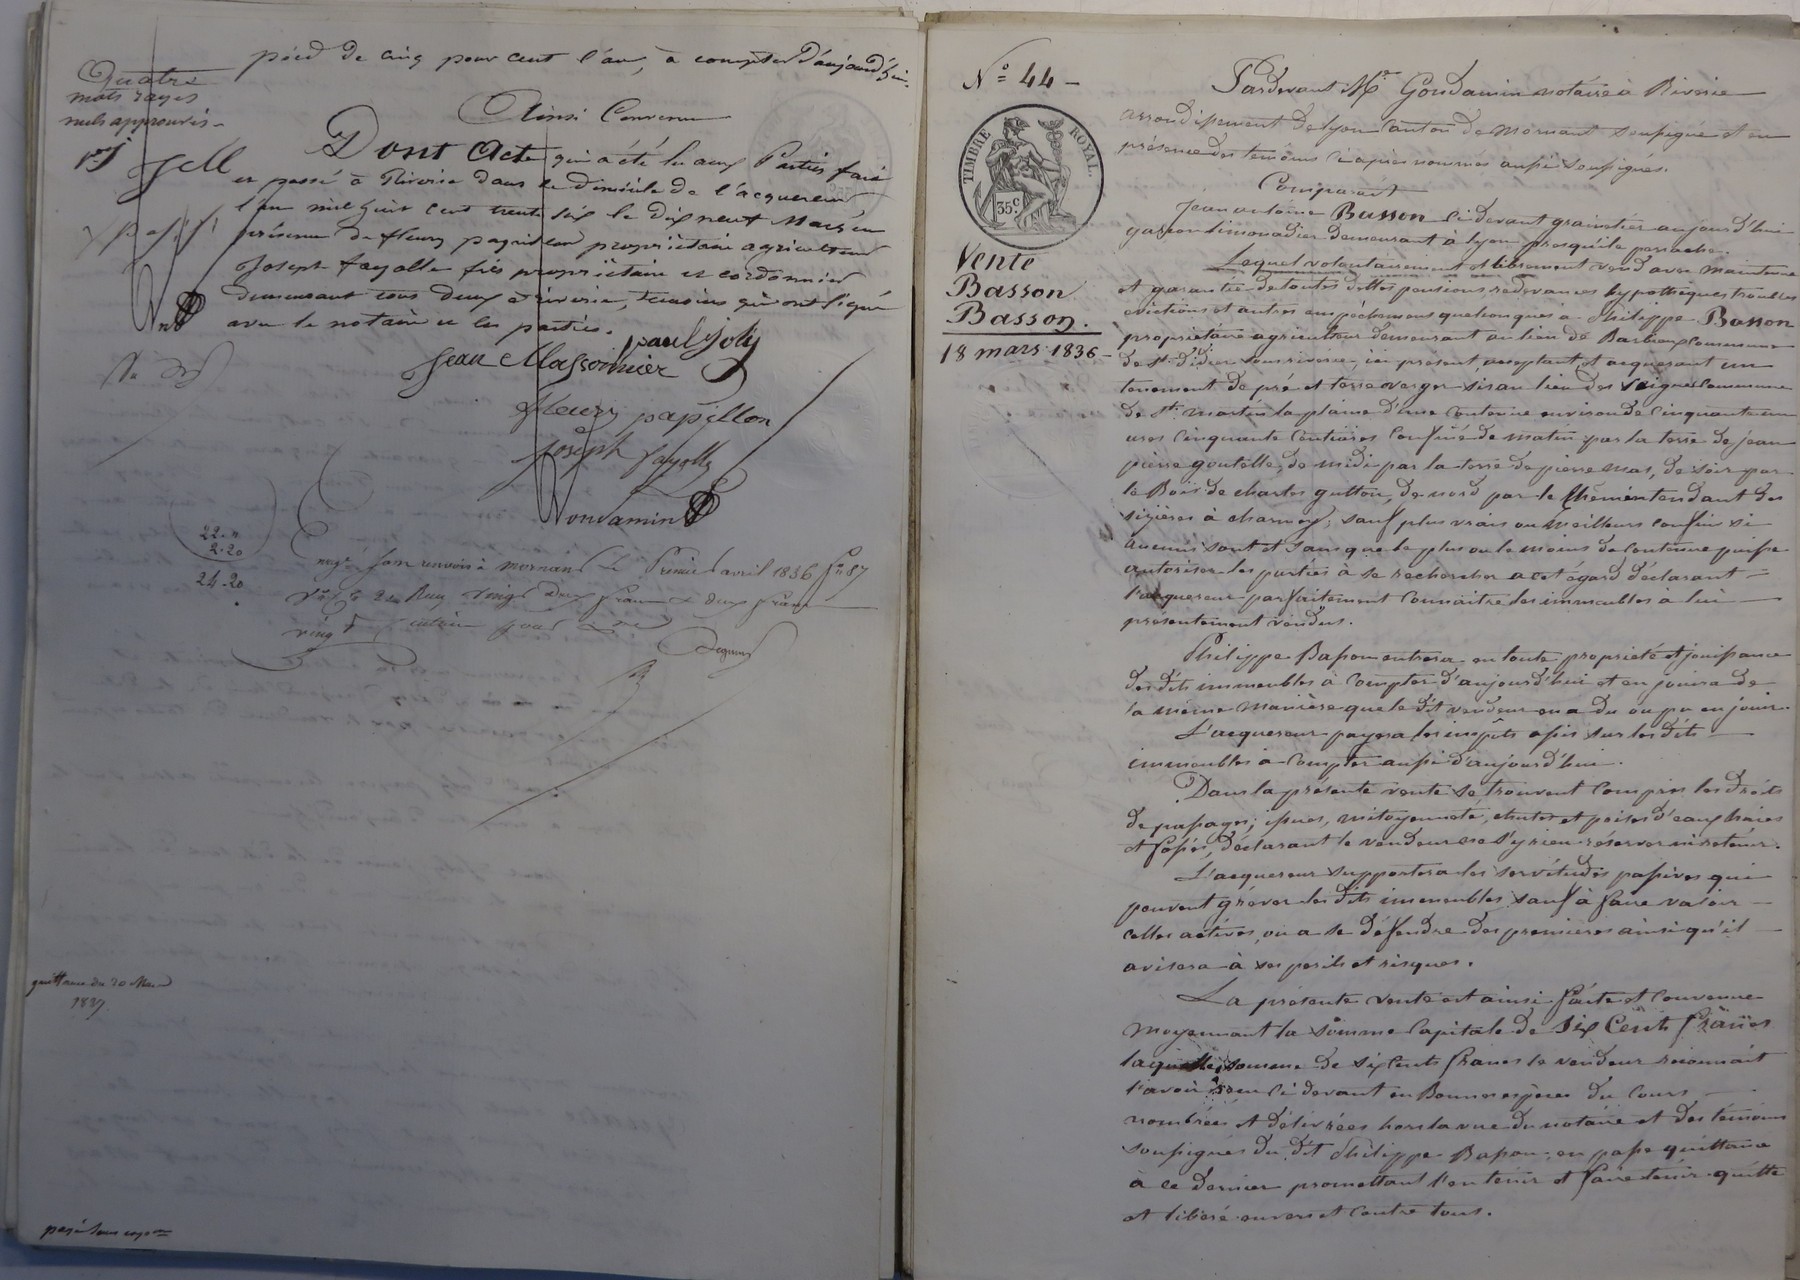 pied de cinq pour cent l'an, à compter d'aujourd'hui.
Quatre
mots rayés
nuls approuvés
Ainsi Convenu
Dont Acte qui a été lu aux Parties fait
et passé à Riverie dans le domicile de l'acquereur
l'an mil huit cent trente six le dix neuf Mars en
présence de fleury papillon propriétaire agriculteur
Joseph fayolle fils propriétaire et cordonnier
demeurant tous deux à riverie, temoins qui ont signé
avec le notaire et les parties.
paul Joly
Jean Massonnier
fleury papillon
Joseph fayolle
Gondamin
22. "
2. 20
24. 20
Enregé sans renvois à mornant le Premier avril 1836 fo 87
Vo Reçu vingt deux francs & deux francs
vingt centimes pour
quittance du 20 Mars
1837.
payé sans copie
No 44
TIMBRE ROYAL.
35 c.
Vente
Basson
à
Basson.
18 mars 1836
Pardevant Me Gondamin notaire à Riverie
arrondissement de lyon canton de mornant soussigné et en
présence des temoins ci après nommés aussi soussignés.
Comparait
Jean antoine Basson ci devant grainetier aujourd'hui
garçon limonadier demeurant à lyon presqu'ile perrache.
Lequel volontairement et librement vend avec maintenue
et garantie de toutes dettes pensions redevances hypothèques troubles
evictions et autres empéchemens quelconques à Philippe Basson
propriétaire agriculteur demeurant au lieu de Barbieux commune
de St. didier sous riverie, ici présent, acceptant et acquerant un
tenement de pré et terre verger sis au lieu des Vaigne Commune
de St. martin la plaine d'une contenue environ de cinquante un
ares cinquante centiares confiné de matin par la terre de jean
pierre goutelle, de midi par la terre de pierre mas, de soir par
le Bois de charles guttou, de nord par le chemin tendant des
sizières à charmey; sauf plus vrais ou meilleurs confins si
aucuns sont et sans que le plus ou le moins de contenue puisse
autoriser les parties à se rechercher a cet égard déclarant
l'acquereur parfaitement connaitre les immeubles à lui
presentement vendus.
Philippe Basson entrera en toute proprieté et jouissance
des dits immeubles à compter d'aujourd'hui et en jouira de
la même manière que le dit vendeur en a du ou pu en jouir.
L'acquereur payera les impôts assis sur les dits
immeubles à compter aussi d'aujourd'hui.
Dans la présente vente se trouvent compris les droits
de passages, issues, mitoyenneté, chutes et prises d'eaux haies
et fossés, déclarant le vendeur ne s'y rien réserver ni retenir.
L'acquereur supportera les servitudes passives qui
peuvent gréver les dits immeubles sauf à faire valoir
celles actives, ou a se défendre des premieres ainsi qu'il
avisera à ses perils et risques.
La présente vente est ainsi faite et convenue
moyennant la somme capitale de Six Cents francs
laquelle somme de six cents francs le vendeur reconnait
l'avoir reçu ci devant en Bonnes espèces du cours
nombrées et délivrées hors la vue du notaire et des témoins
soussignés du dit Philippe Basson, en passe quittance
à ce dernier promettant l'en tenir et faire tenir quitte
et libéré envers et contre tous.